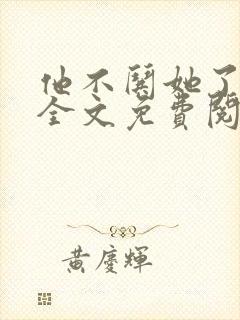 他不闹她了
全文免費閱
黃慶輝